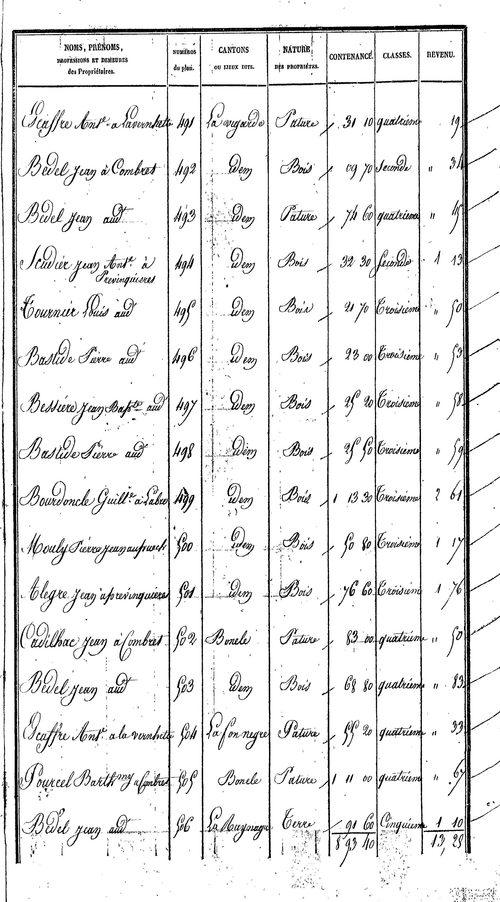 NOMS, PRÉNOMS, PROFESSIONS ET DEMEURES des Propriétaires. NUMÉROS du plan. CANTONS OU LIEUX DITS. NATURE DES PROPRIÉTÉS. CONTENANCE. CLASSES. REVENU.
Escaffre Ant.ne a Lavernhete 491 Pature 31 10 quatrieme 19
Bedel Jean à Combret 492 idem Bois 09 70 Seconde " 34
Bedel Jean aud.t 493 idem Pature 74 60 quatrieme " 45
Scudier Jean Ant.ne à Previnquieres 494 idem Bois 32 30 Seconde 1 13
Tournier Louis aud 495 idem Bois 21 70 Troisieme " 50
Bastide Pierre aud.t 496 idem Bois 23 00 Troisieme " 53
Bessiere Jean Bap.te aud 497 idem Bois 25 20 Troisieme " 58
Bastide Pierre aud 498 idem Bois 25 50 Troisieme " 59
Bourdoncle Guill.e à 499 idem Bois 1 13 30 Troisieme 2 61
Mouly Pierre Jean 500 idem Bois 50 80 Troisieme 1 17
Alegre Jean a previnquieres 501 idem Bois 76 60 Troisieme 1 76
Cadilhac Jean à Combret 502 Bonele Pature 83 00 quatrieme " 50
Bedel Jean aud.t 503 idem Bois 68 80 quatrieme " 83
Escaffre Ant.e a la vernhete 504 La fon negre Pature 55 20 quatrieme " 33
Pourcel Barth.my a Combret 505 Bonele Pature 1 11 00 quatrieme " 67
Bedel Jean aud 506 Terre 91 60 Cinquieme 1 10
8 93 40 13, 28